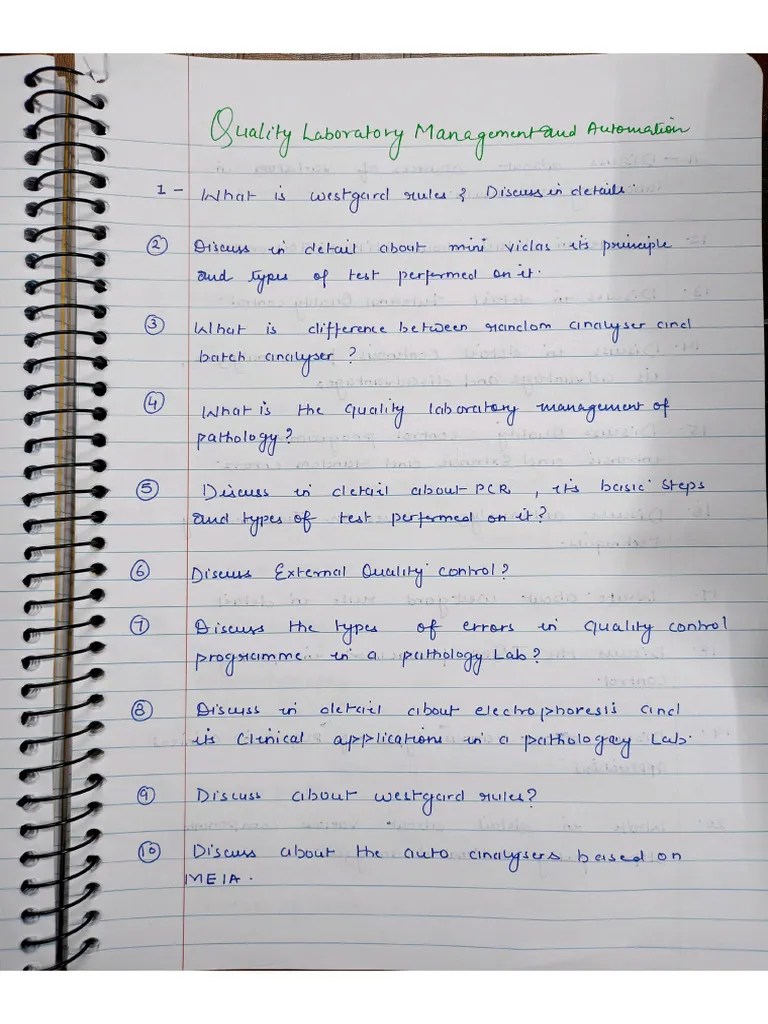 Quality Laboratory Management and Automation
1 - What is westgard rules? Discuss in details.
② Discuss in detail about mini viclas its principle
and types of test performed on it.
③ What is difference between random analyser and
batch analyser ?
④ What is the quality laboratory management of
pathology?
⑤ Discuss in detail about PCR , its basic steps
and types of test performed on it?
⑥ Discuss External Quality control?
⑦ Discuss the types of errors in quality control
programme in a pathology Lab?
⑧ Discuss in detail about electrophoresis and
its Clinical applications in a pathology Lab.
⑨ Discuss about westgard rules?
⑩ Discuss about the auto analysers based on
MEIA.